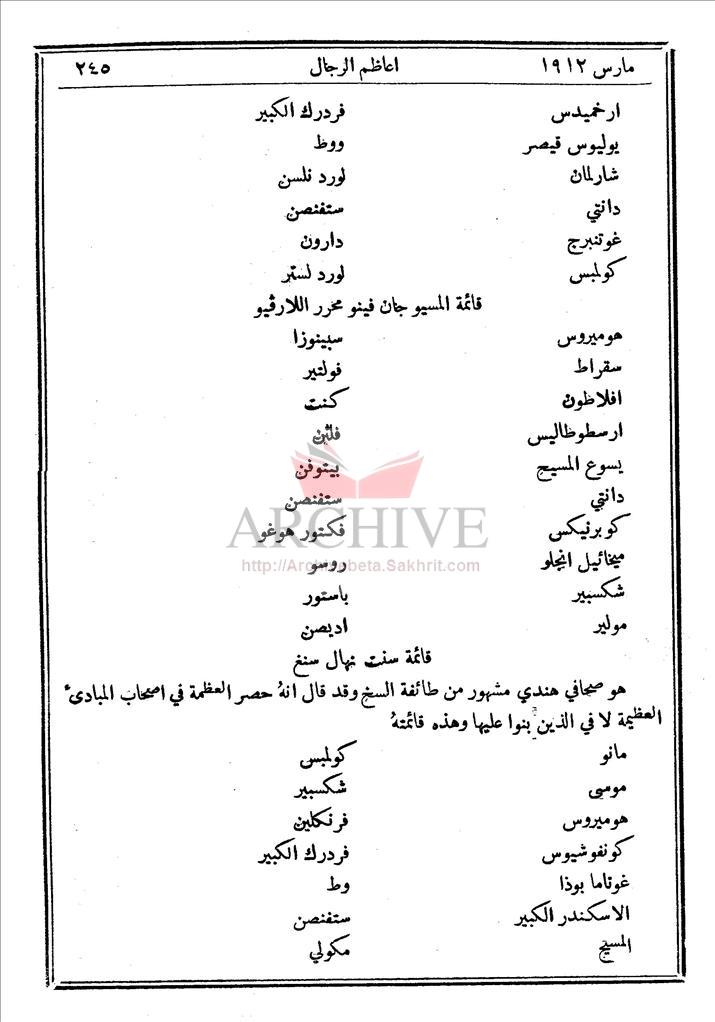 مارس ١٩١٢ اعاظم الرجال ٢٤٥
ارخميدس فردرك الكبير
يوليوس قيصر ووظ
شارلمان لورد نلسن
دانتي ستفنصن
غوتنبرج دارون
كولمبس لورد لستر
قائمة المسيو جان فينو محرر اللارڤيو
هوميروس سبينوزا
سقراط فولتير
افلاطون كنت
ارسطوطاليس فلتن
يسوع المسيح بيتوفن
دانتي ستفنصن
كوبرنيكس فكتور هوغو
ARCHIVE
ميخائيل انجلو روسو
http://Archivebeta.Sakhrit.com
شكسبير باستور
مولير اديصن
قائمة سنت نهال سنغ
هو صحافي هندي مشهور من طائفة السخ وقد قال انهُ حصر العظمة في اصحاب المبادئ
العظيمة لا في الذين بنوا عليها وهذه قائمتهُ
مانو كولمبس
موسى شكسبير
هوميروس فرنكلين
كونفوشيوس فردرك الكبير
غوتاما بوذا وط
الاسكندر الكبير ستفنصن
المسيح مكولي